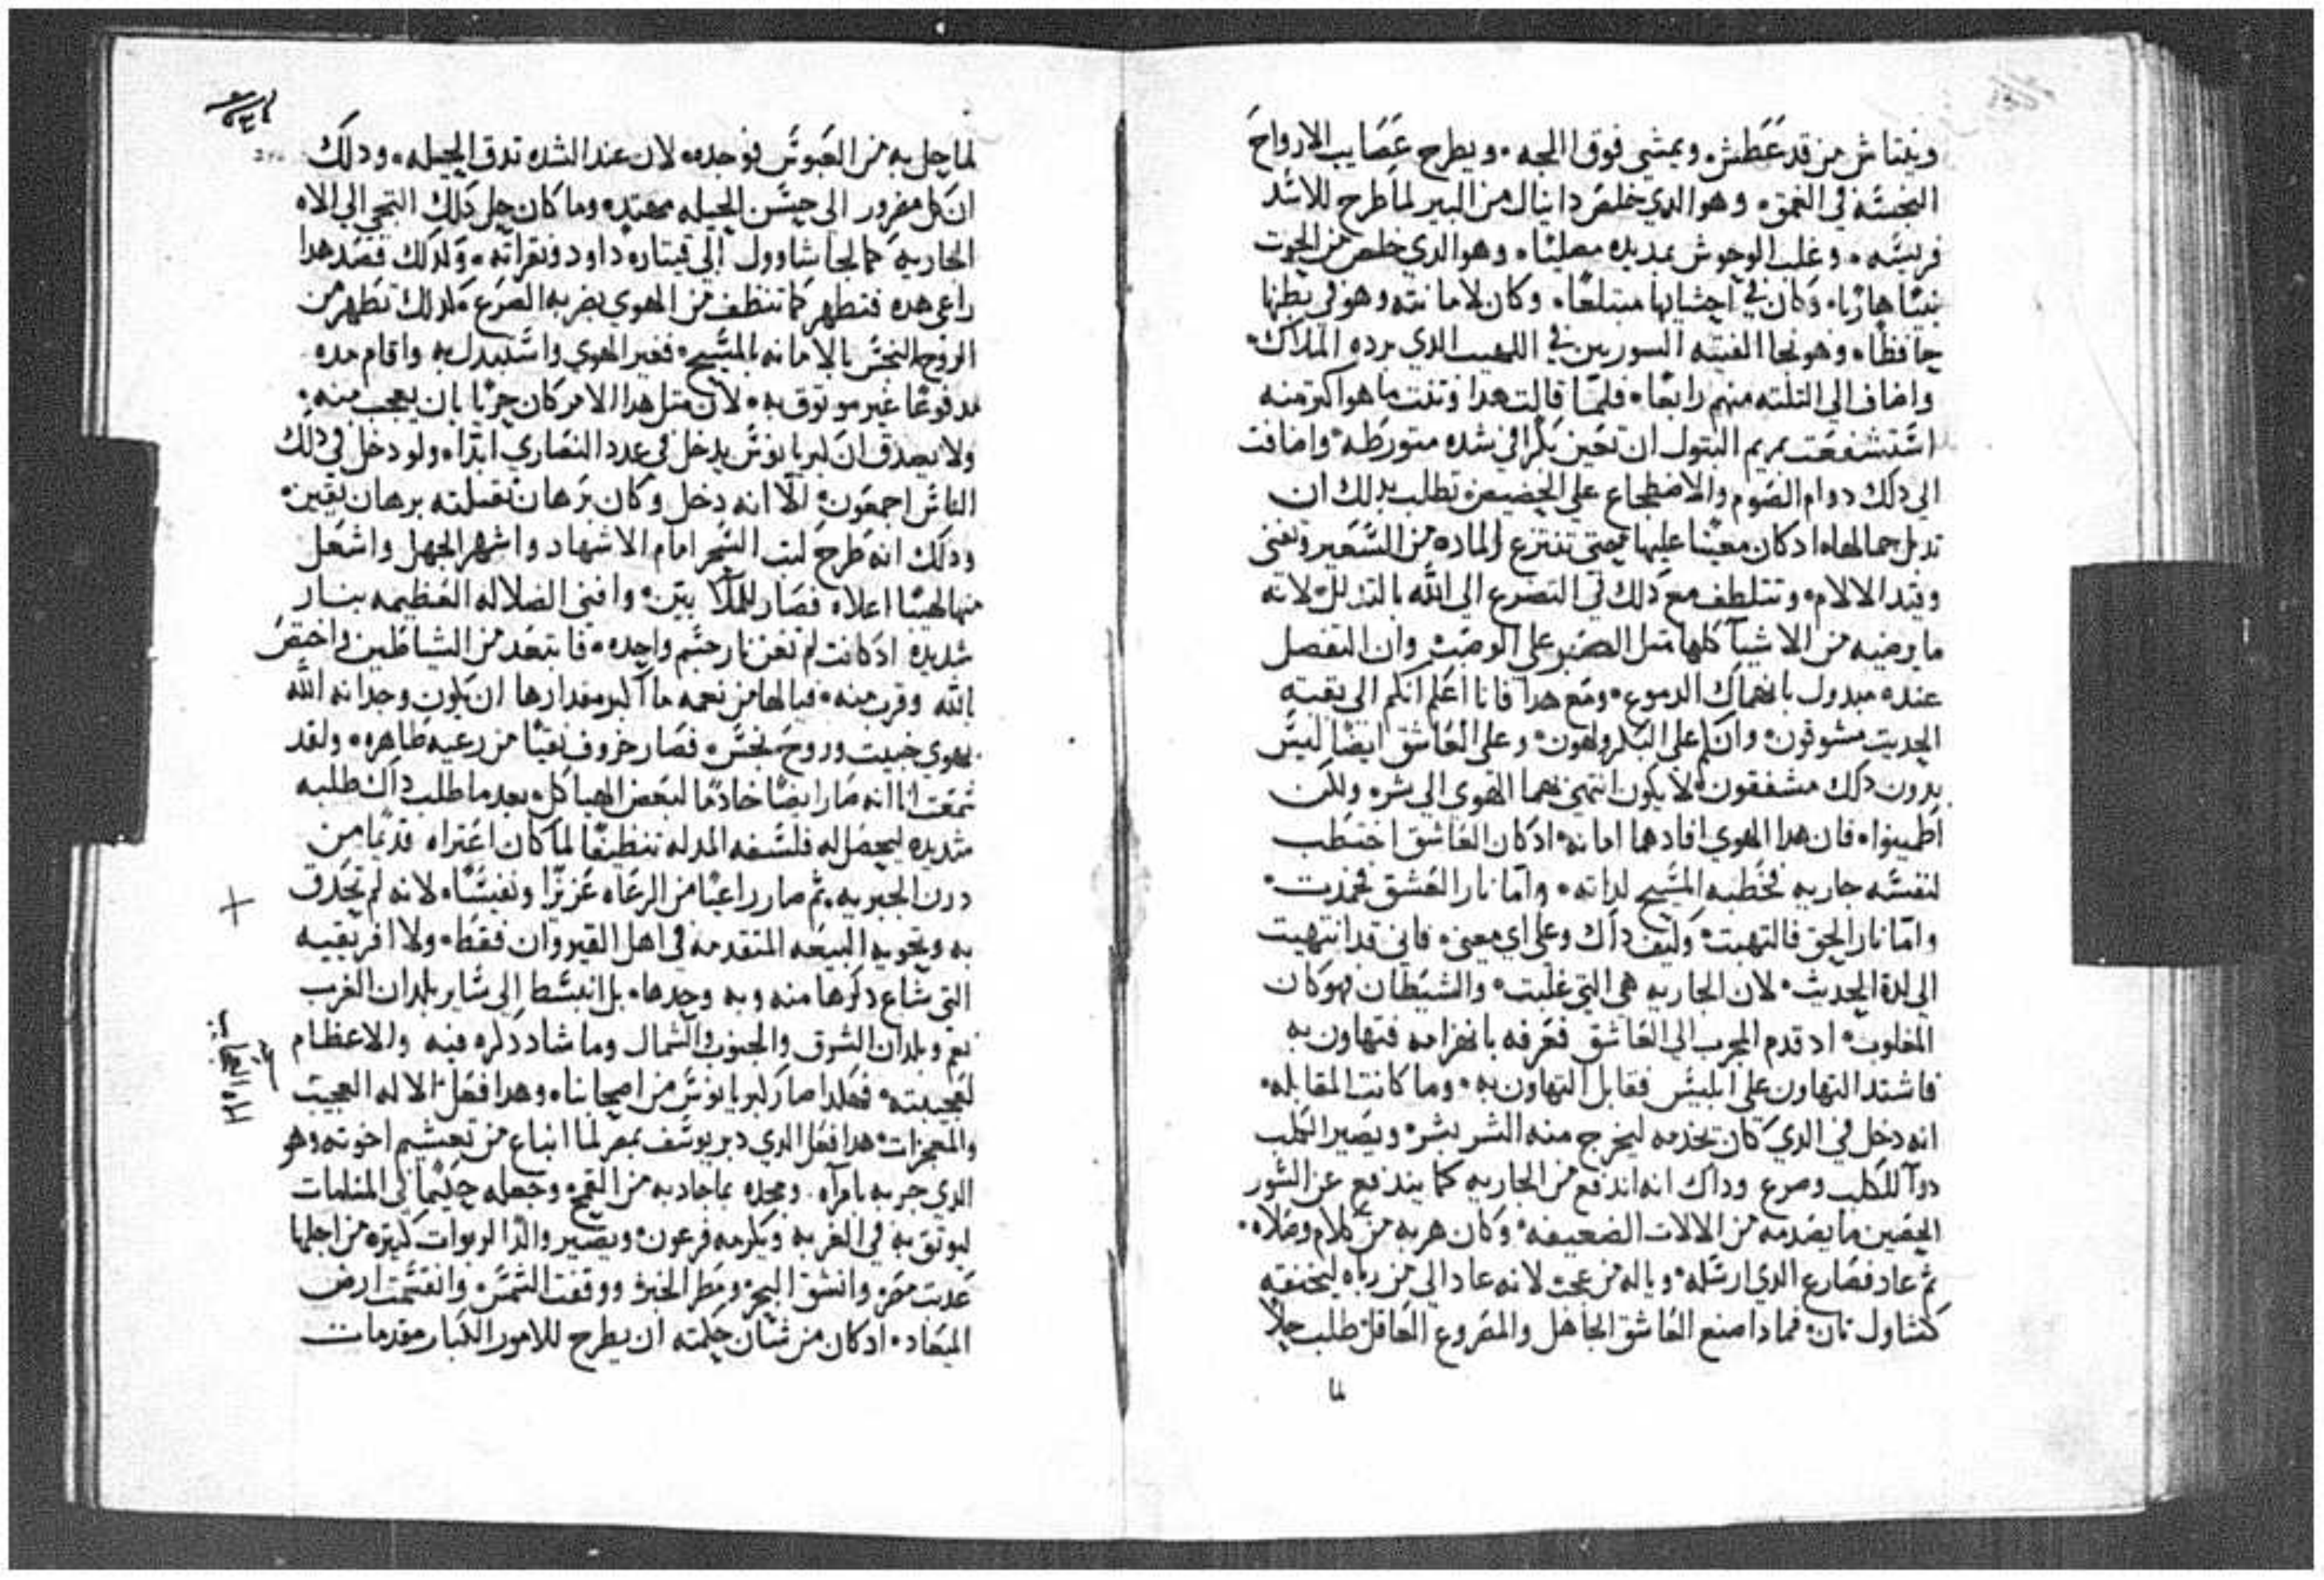 وينتاش من قد غطش. ويمشي فوق اللجه. ويطرح عصايب الارواح
النجسه في العمق. وهو الدي خلص دانيال من البير لما طرح للاسد
فريسه. وغلب الوحوش بمد يده مصليا. وهو الدي خلص من الحوت
نبيا هاربا. وكان في احشايها مبتلعا. وكان لامانته وهو في بطنها
حافظا. وهو نجا الفتيه السوريين في اللهيب الدي برده الملاك.
واضاف الي التلته منهم رابعا. فلما قالت هدا وتنت ما هو اكتر منه
استشفعت بمريم البتول ان تعين بكرا في شده متورطه. واضافت
الي دلك دوام الصوم والاضطجاع علي الحضيض تطلب بدلك ان
تدبل جمالها اد كان معينا عليها حتي تنتزع الماده من السعير وتفني
وقيد الالام. وتتلطف مع دلك في التضرع الي الله بالتدلل لانه
ما يرضيه من الاشيا كلها متل الصبر علي الوصب وان التفضل
عنده مبدول بانهماك الدموع. ومع هدا فانا اعلم انكم الي بقية
الحديت مشوقون. وانكم علي البكر ولهون. وعلي العاشق ايضا ليس
بدون دلك مشفقون. لا يكون انتهي بهما الهوي الي شر. ولكن
اطمينوا. فان هدا الهوي افادهما امانه. اد كان العاشق اختطب
لنفسه جاريه فخطبه المسيح لداته. واما نار العشق فخمدت.
واما نار الحق فالتهبت. وكيف داك وعلي اي معني. فاني قد انتهيت
الي لدة الحديث. لان الجاريه هي التي غلبت. والشيطان فهو كان
المغلوب. اد قدم المجرب الي العاشق فعرفه بانهزامه فتهاون به
فاشتد التهاون علي ابليس فقابل التهاون به. وما كانت المقابله.
انه دخل في الدي كان يخدمه ليخرج منه الشر بشر. ويصير الكلب
دوا للكلب وصرع وداك انه اندفع من الجاريه كما يندفع عن السور
الحصين ما يصدمه من الالات الضعيفه. وكان هربه من كلام وصلاه.
تم عاد فصارع الدي ارسله. وياله من عجب لانه عاد الي من رباه ليخنقه
كشاول تان. فمادا صنع العاشق الجاهل والمصروع العاقل طلب حلا
لما
لما حل به من العبوس فوجده. لان عند الشده تدق الحيله. ودلك
ان كل مضرور الي حسن الحيله مهتد. وما كان حل دلك التجي الي الاه
الجاريه كما لجا شاوول الي قيتارة داود ونقراته. ولدلك قصد هدا
راعي هده فتطهر كما تنظف من الهوي بضربه الصرع كدلك تطهر من
الروح النجس بالامانه بالمسيح. فغير الهوي واستبدل به واقام مده
مدفوعا غير موتوق به. لان متل هدا الامر كان حريا بان يعجب منه.
ولا يصدق ان كبريانوس يدخل في عدد النصاري ابدا. ولو دخل في دلك
الناس اجمعون. الا انه دخل وكان برهان نقلته برهان يقين.
ودلك انه طرح كتب السحر امام الاشهاد واشهر الجهل واشعل
منها لهيبا اعلاه فصار للملا بين. وافني الضلاله العظيمه بنار
شديده اد كانت لم تغن نار جسم واحده. فابتعد من الشياطين واختص
بالله وقرب منه. فيا لها من نعمه ما اكبر مقدارها ان يكون وجدانه الله
بهوي خبيت وروح نجس. فصار خروف نقيا من رعيه طاهره. ولقد
سمعت انا انه صار ايضا خادما لبعض الهياكل بعد ما طلب داك طلبه
شديده ليحصل له فلسفه المدله تنظيفا لما كان اعتراه قديما من
درن الجبريه. تم صار راعيا من الرعاه عزيزا ونفيسا. لانه لم تحدق
به وتحويه البيعه المتقدمه في اهل القيروان فقط. ولا افريقيه
التي شاع دكرها منه وبه وحدها. بل انبسط الي ساير بلدان الغرب
نعم وبلدان الشرق والجنوب والشمال وما شاد دكره فيه والاعظام
لعجيبته. فهكدا صار كبريانوس من اصحابنا. وهدا فعل الاله العجيب
والمعجزات. هدا فعل الدي دبر يوسف بمصر لما انباع من تعبشم اخوته وهو
الدي جربه بامراه. ومجده بما جاد به من القمح. وجعله حكيما في المنامات
ليوتق به في الغربه ويكرمه فرعون. ويصير والدا لربوات كتيره من اجلها
عدبت مصر. وانشق البحر. ومطر الخبز. ووقفت الشمس. وانقسمت ارض
الميعاد. اد كان من شان حكمته ان يطرح للامور الكبار مقدمات